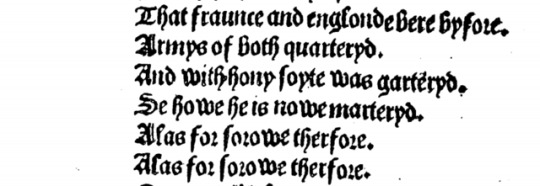 That fraunce and englonde bere byfore.
Armys of both quarteryd.
And with hony soyte was garteryd.
Se howe he is nowe marteryd.
Alas for sorowe therfore.
Alas for sorowe therfore.